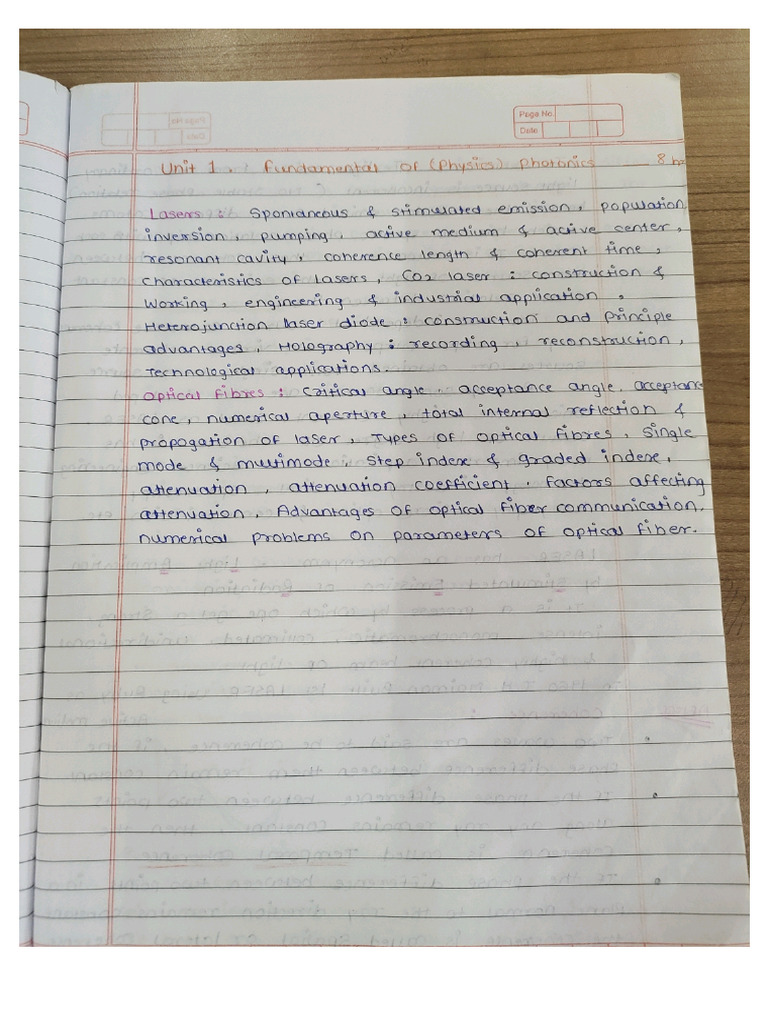 Page No.
Date
Unit 1. : Fundamental of (Physics) Photonics — 8 hr
Lasers : Spontaneous & stimulated emission, population
inversion, pumping, active medium & active center,
resonant cavity, coherence length & coherent time,
characteristics of lasers, CO2 laser : construction &
working, engineering & industrial application,
Heterojunction laser diode : construction and principle
advantages, Holography : recording, reconstruction,
Technological applications.
Optical Fibres : Critical angle, acceptance angle, acceptance
cone, numerical aperture, total internal reflection &
propogation of laser, Types of optical fibres, Single
mode & multimode, step index & graded index,
attenuation, attenuation coefficient, factors affecting
attenuation, Advantages of optical fiber communication,
numerical problems on parameters of optical fiber.